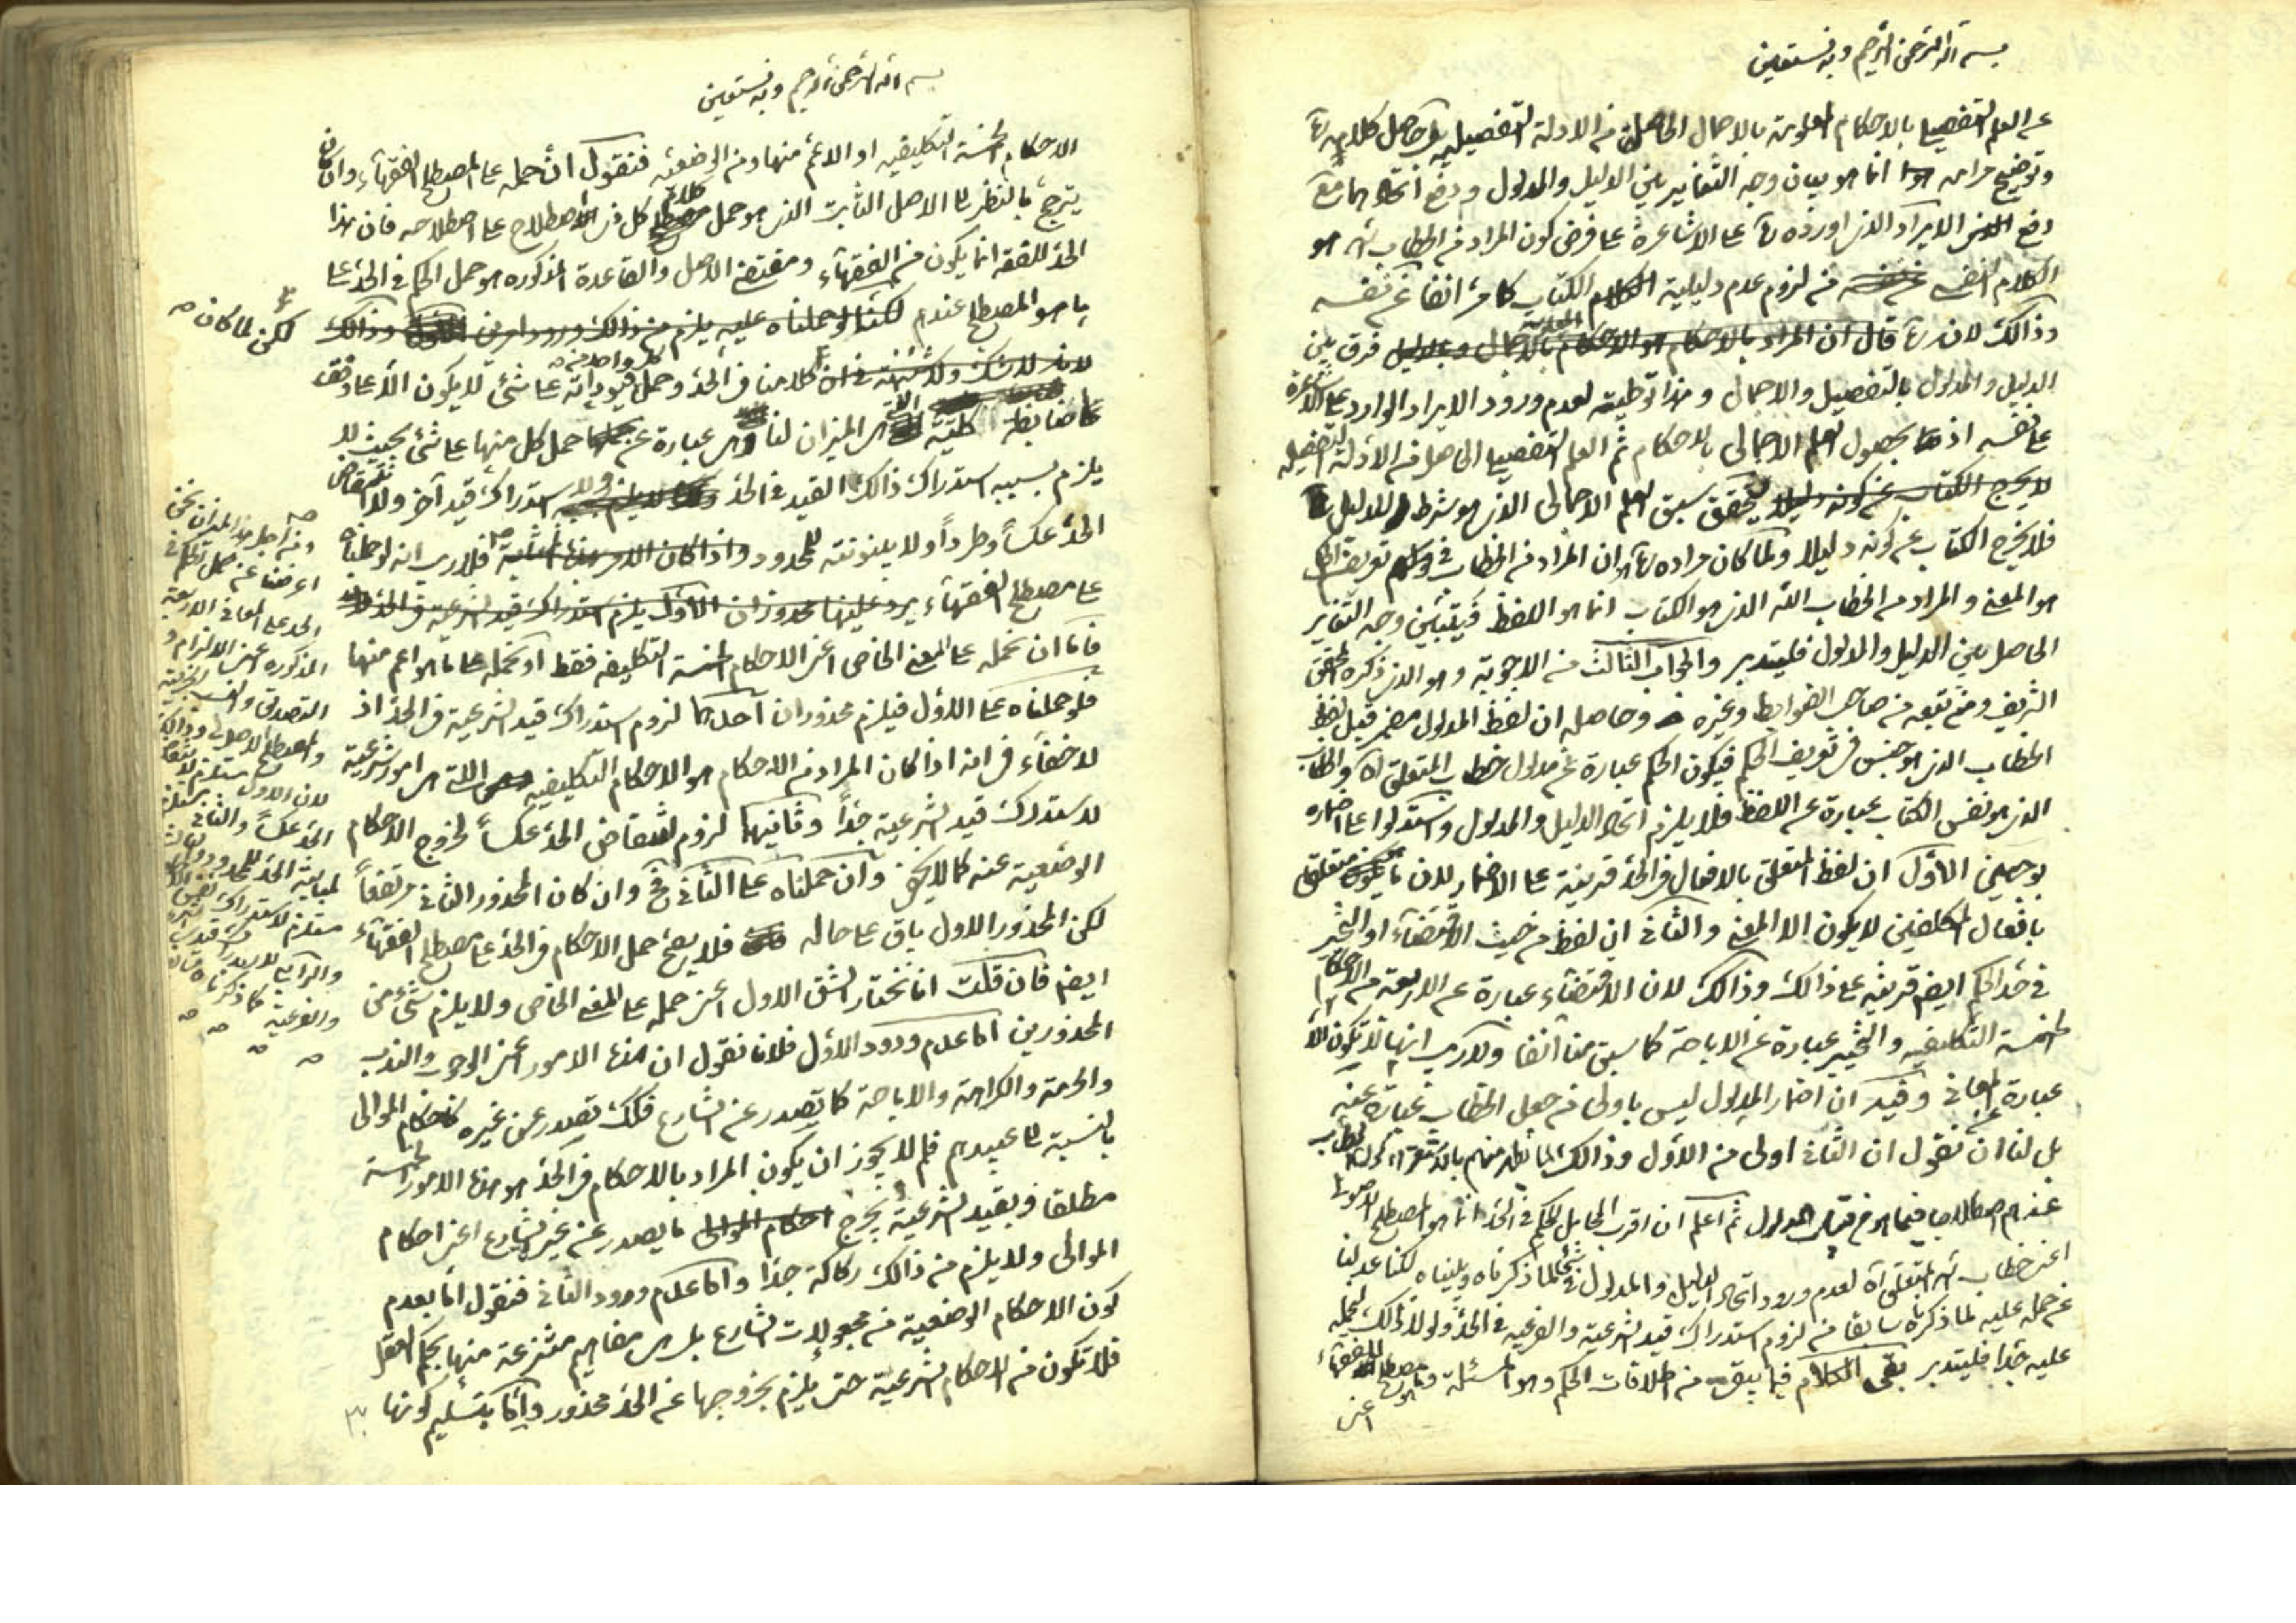 بسم الله الرحمن الرحيم وبه نستعين
عن العلم التفصيلي بالاحكام المعلومة بالاجمال الحاصل من الادلة التفصيلية بل حاصل كلامه ره
وتوضيح مرامه انما هو بيان وجه التغاير بين الدليل والمدلول ودفع اتحادهما مع
دفع الايراد الذي اورده ره على الاشاعرة على فرض كون المراد من الخطاب هو
الكلام النفسي من لزوم عدم دليلية الكتاب كما مر انفا عن نفسه
وذالك لانه ره قال ان المراد بالاحكام هو الاحكام المعلومة بالاجمال فرق بين
الدليل والمدلول بالتفصيل والاجمال وهذا توطئة لعدم ورود الايراد الوارد على الاشاعرة
على نفسه اذ بحصول العلم الاجمالي بالاحكام ثم العلم التفصيلي الحاصل من الأدلة التفصيلية
لا يخرج الكتاب عن كونه دليلا لتحقق سبق العلم الاجمالي الذي هو شرط للدليل
فلا يخرج الكتاب عن كونه دليلا ولما كان مراده ره ان المراد من الخطاب في تعريف الحكم
هو المعنى والمراد من الخطاب الله الذي هو الكتاب انما هو اللفظ فيتبين وجه التغاير
الحاصل بين الدليل والمدلول فليتدبر والجواب الثالث من الاجوبة وهو الذي ذكره المحقق
الشريف ومن تبعه من صاحب الضوابط وغيره وحاصله ان لفظ المدلول مضمر قبل لفظ
الخطاب الذي هو جنس في تعريف الحكم فيكون الحكم عبارة عن مدلول خطاب المتعلق اه والخطاب
الذي هو نفس الكتاب عبارة عن اللفظ فلا يلزم اتحاد الدليل والمدلول واستدلوا على اضماره
بوجهين الأول ان لفظ المتعلق بالافعال في الحد قرينة على الاضمار لان ما يتعلق
بافعال المكلفين لا يكون الا المعنى والثاني ان لفظ من حيث الاقتضاء او التخيير
في حد الحكم ايضا قرينة على ذالك وذالك لان الاقتضاء عبارة عن الاربعة من الاحكام
الخمسة التكليفية والتخيير عبارة عن الاباحة كما سبق منا آنفا ولا ريب انها لا تكون الا
عبارة عن المعاني وفيه ان اضمار المدلول ليس باولى من جعل الخطاب عبارة عنه
بل لنا ان نقول ان الثاني اولى من الأول وذالك لما نظهر منهم بالاستقراء كون الخطاب
عندهم اصطلاحا فيما هو من قبيل المدلول ثم اعلم ان اقرب المحامل للحكم في الحد انما هو المصطلح الاصولي
اعني خطاب الله المتعلق اه لعدم ورود اتحاد الدليل والمدلول لما ذكرناه وبيناه لكنا عدلنا
عن حمله عليه لما ذكرناه سابقا من لزوم استدراك قيد الشرعية والفرعية في الحد ولولا ذالك لحمله
عليه جدا فليتدبر بقي الكلام فيما بقي من اطلاقات الحكم وهو المسئلة ومصطلح الفقهاء
اعني
بسم الله الرحمن الرحيم وبه نستعين
الاحكام الخمسة التكليفية او الاعم منها ومن الوضعية فنقول ان حمله على مصطلح الفقهاء وان كان
يترجح بالنظر الى الاصل الثابت الذي هو حمل كلام كل ذي اصطلاح على اصطلاحه فان هذا
الحد للفقه انما يكون من الفقهاء ومقتضى الاصل والقاعدة المذكورة هو حمل الحكم في الحد على
ما هو المصطلح عندهم لكننا لو حملناه عليه يلزم من ذالك ورود امرين وذالك
لكن لما كان
كلامنا في الحد وحمل كل واحد من قيوداته على شئ لا يكون الا على وفق
ضابطة كلية هي الميزان لنا وهي عبارة عن حمل كل منها على شئ بحيث لا
يلزم بسببه استدراك ذالك القيد في الحد ولا استدراك قيد آخر ولا انتقاض
الحد عكسا وطردا ولا بينونته للمحدود فلا ريب انه لو حملناه
على مصطلح الفقهاء يرد عليها محذوران الأول يلزم استدراك قيد الشرعية في الحد
فاما ان نحمله على المعنى الخاص اعني الاحكام الخمسة التكليفية فقط او نحمله على ما هو اعم منها
فلو حملناه على الأول فيلزم محذوران احدهما لزوم استدراك قيد الشرعية في الحد اذ
لا خفاء في انه اذا كان المراد من الاحكام هو الاحكام التكليفية التي هي امور شرعية
لاستدرك قيد الشرعية جدا وثانيهما لزوم انتقاض الحد عكسا لخروج الاحكام
الوضعية عنه كما لا يخفى وان حملناه على الثاني فح وان كان المحذور الثاني مرتفعا
لكن المحذور الاول باق على حاله فلا يصح حمل الاحكام في الحد على مصطلح الفقهاء
ايضا فان قلت انا نختار الشق الاول اعني حمله على المعنى الخاص ولا يلزم شئ من
المحذورين اما عدم ورود الأول فلانا نقول ان هذه الامور اعني الوجوب والندب
والحرمة والكراهة والاباحة كما تصدر عن الشارع فكك تصدر عن غيره كاحكام الموالى
بالنسبة الى عبيدهم فلم لا يجوز ان يكون المراد بالاحكام في الحد هو هذه الامور الخمسة
مطلقا وبقيد الشرعية يخرج ما يصدر عن غير الشارع اعني احكام
الموالى ولا يلزم من ذالك ركاكة جدا واما عدم ورود الثاني فنقول اما بعدم
كون الاحكام الوضعية من مجعولات الشارع بل هي مفاهيم منتزعة منها بحكم العقل
فلا تكون من الاحكام الشرعية حتى يلزم بخروجها عن الحد محذور واما بتسليم كونها
ومن اجل هذا الميزان نحن
اعرضنا عن حمل الحكم في
الحد على المعاني الاربعة
المذكورة اعني الالزام و
التصديق والنسب الخبرية
والمصطلح الاصولي وذالك
لان الاول مستلزم لانتقاض
الحد عكسا والثاني مستلزم
لمباينة الحد للمحدود والثالث
مستلزم لاستدراك
والرابع لاستدراك قيد الشرعية
والفرعية كما ذكرناه سابقا